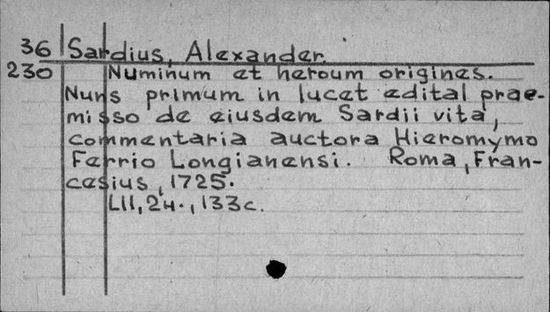 36 Sardius, Alexander
230 Numinum et heroum origines.
Nuns primum in lucet edital prae-
misso de eiusdem Sardii vita,
commentaria auctora Hieromymo
Ferrio Longianensi. Roma, Fran-
cesius, 1725.
LII, 2н., 133c.